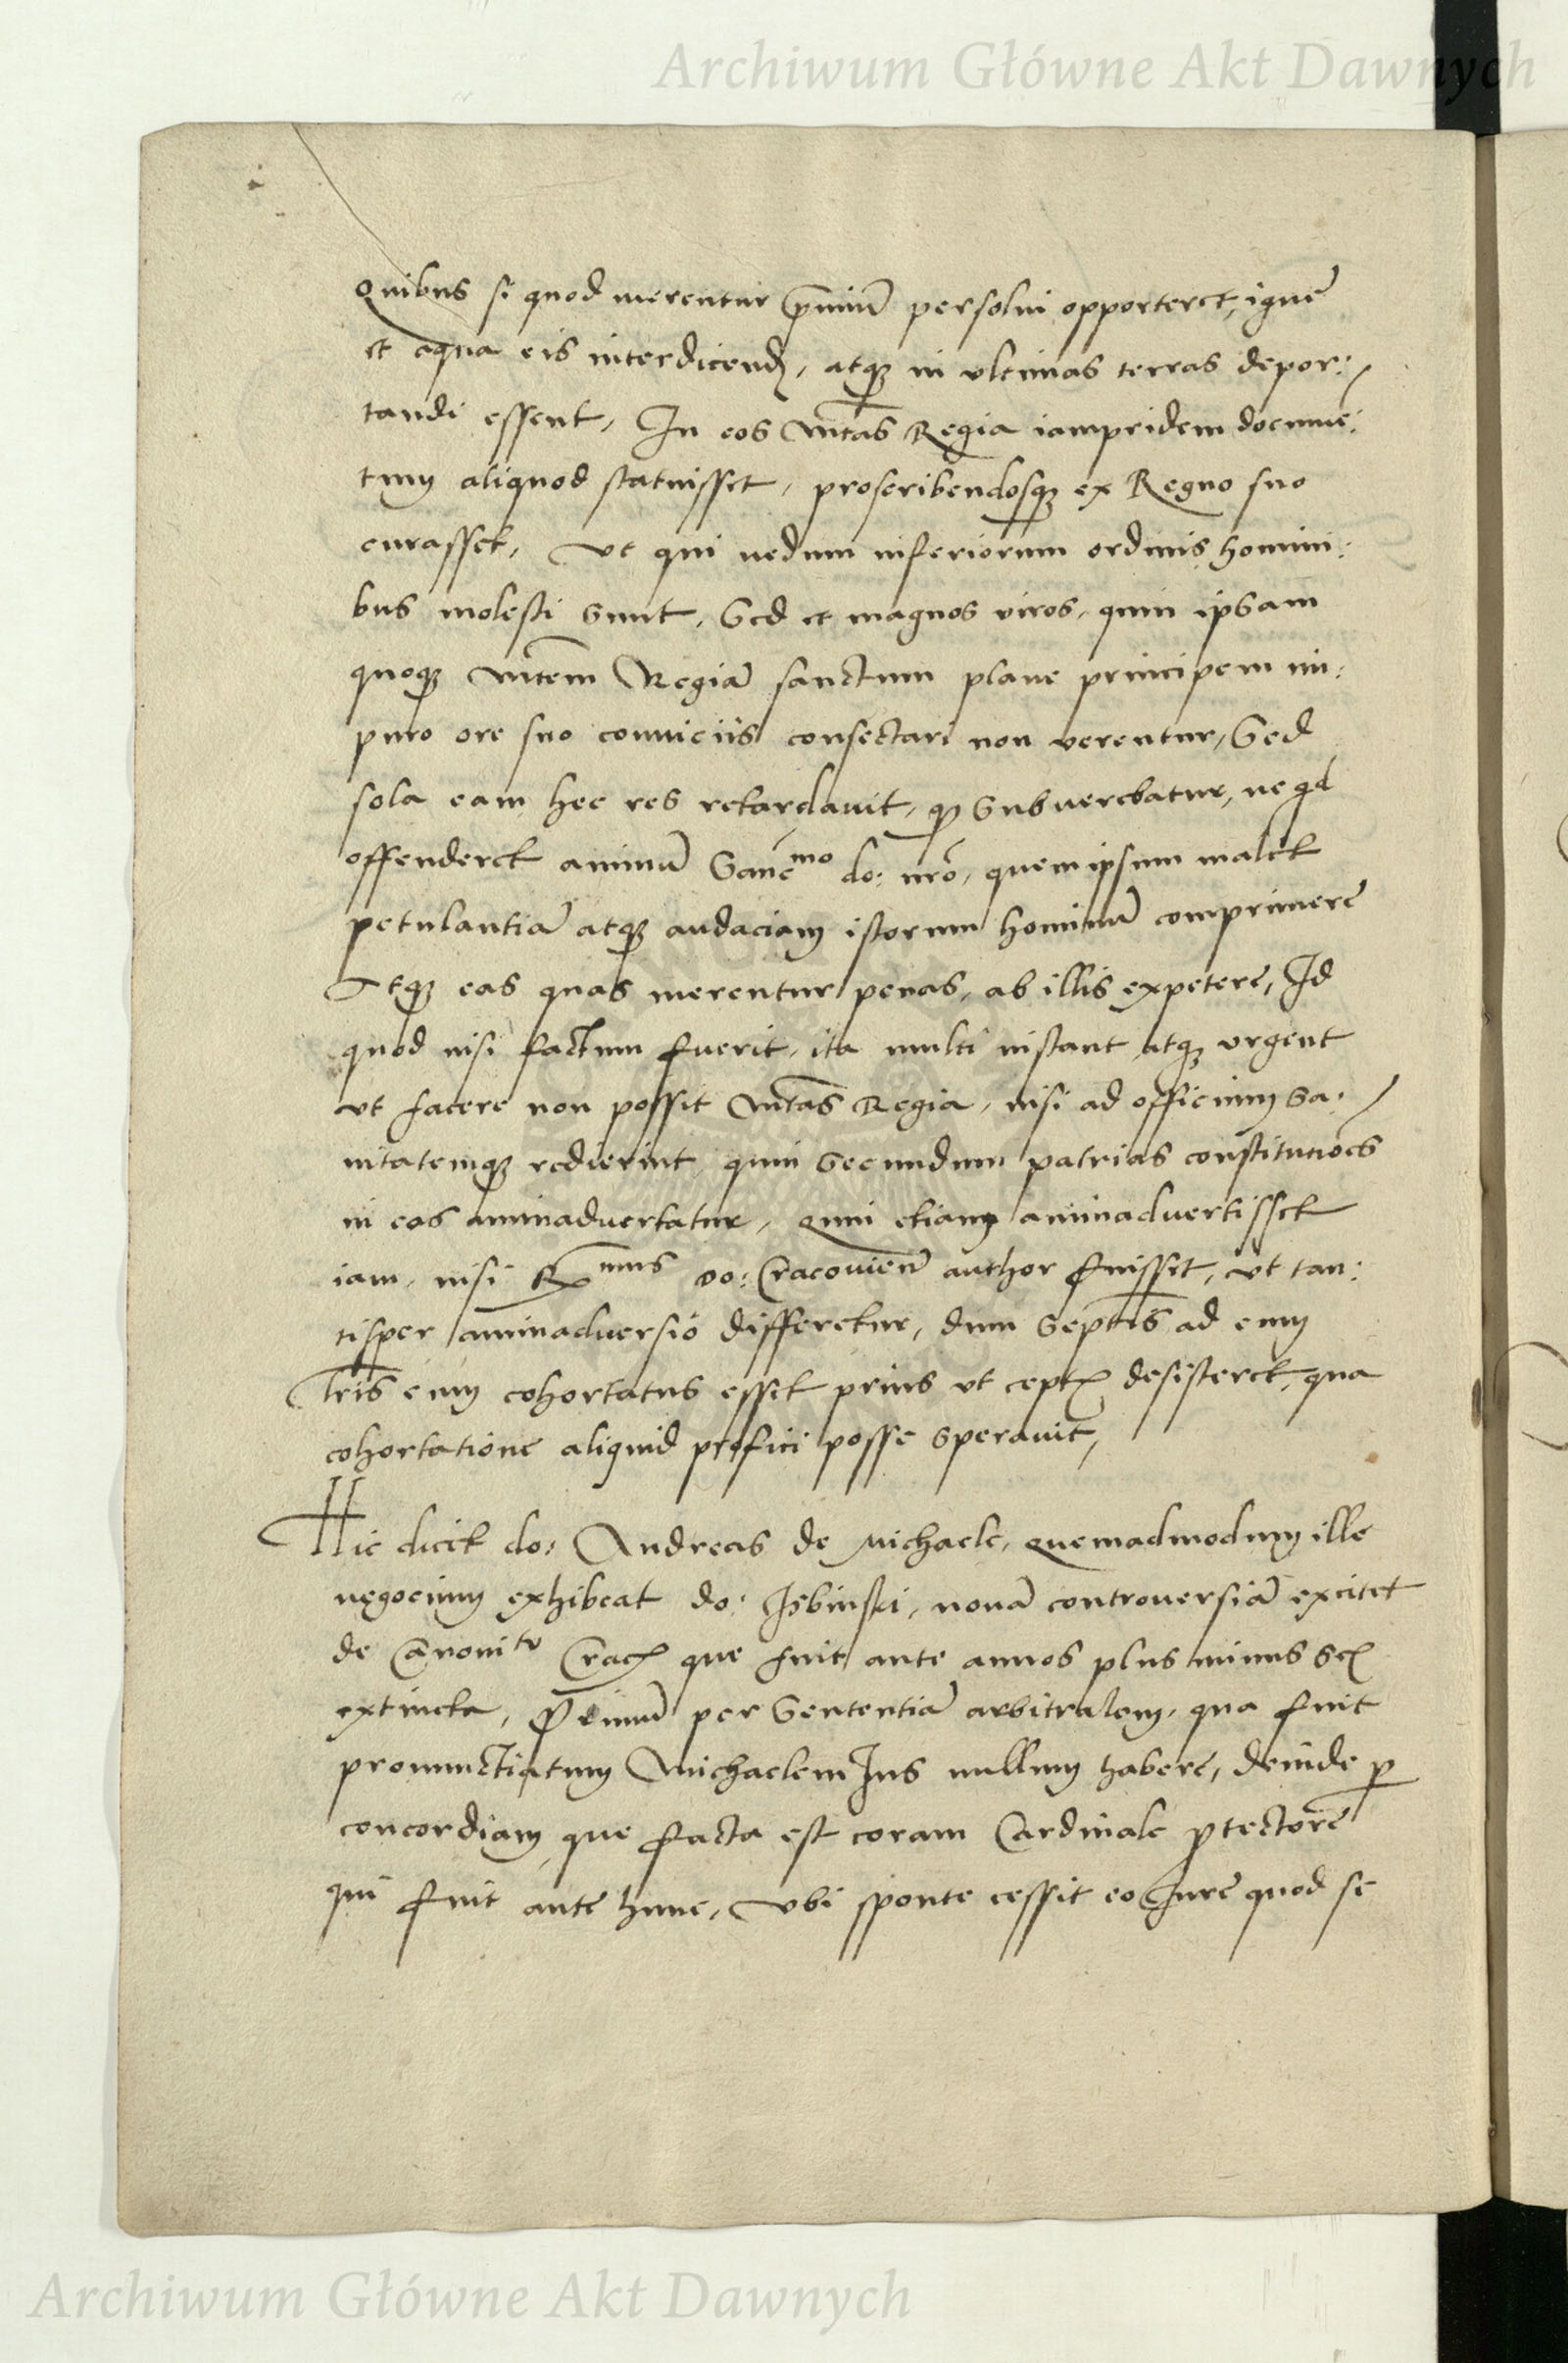 Archiwum Główne Akt Dawnych
Quibus si quod merentur p̄miū persolui opporteret, igne
et aqua eis interdicend, atq; in vltimas terras depor:
tandi essent, In eos Mtas Regia iampridem documē:
tum aliquod statuisset, proscribendosq; ex Regno suo
curasset, vt qui nedum inferiorum ordinis homini:
bus molesti sunt, Sed et magnos viros, quin ipsam
quoq; Mtem Regiā sanctum plane principem im:
puro ore suo conuiciis consectari non verentur, Sed
sola eam hec res retardauit, q subuerebatur, ne qd
offenderet animū Sancmo do: nrō, quem ipsum mallet
petulantiā atq; audaciam istorum hominū comprimere
Atq; eas quas merentur penas, ab illis expetere, Id
quod nisi factum fuerit, ita multi instant atq; vrgent
vt facere non possit Mtas Regia, nisi ad officium sa:
nitatemq; redierint, quin secundum patrias constitutiōes
in eos animaduertatur, Quin etiam animaduertisset
iam, nisi Rmus do: Cracouien author fuisset, vt tan:
tisper animaduersio differetur, dum scptis ad eum
lris eum cohortatus esset prius vt ceptis desisteret, qua
cohortatione aliquid profici posse sperauit,
Hic dicit do: Andreas de Michaele, quemadmodum ille
negocium exhibeat do: Isbinski, nouā controuersiā excitet
de Canonitu Crac que fuit ante annos plus minus sex
extincta, Primū per sententiā arbitralem, qua fuit
pronunctiatum Michaelem Ius nullum habere, deinde p
concordiam que facta est coram Cardinale ptectore
qui fuit ante hunc, vbi sponte cessit eo Iure quod se
Archiwum Główne Akt Dawnych